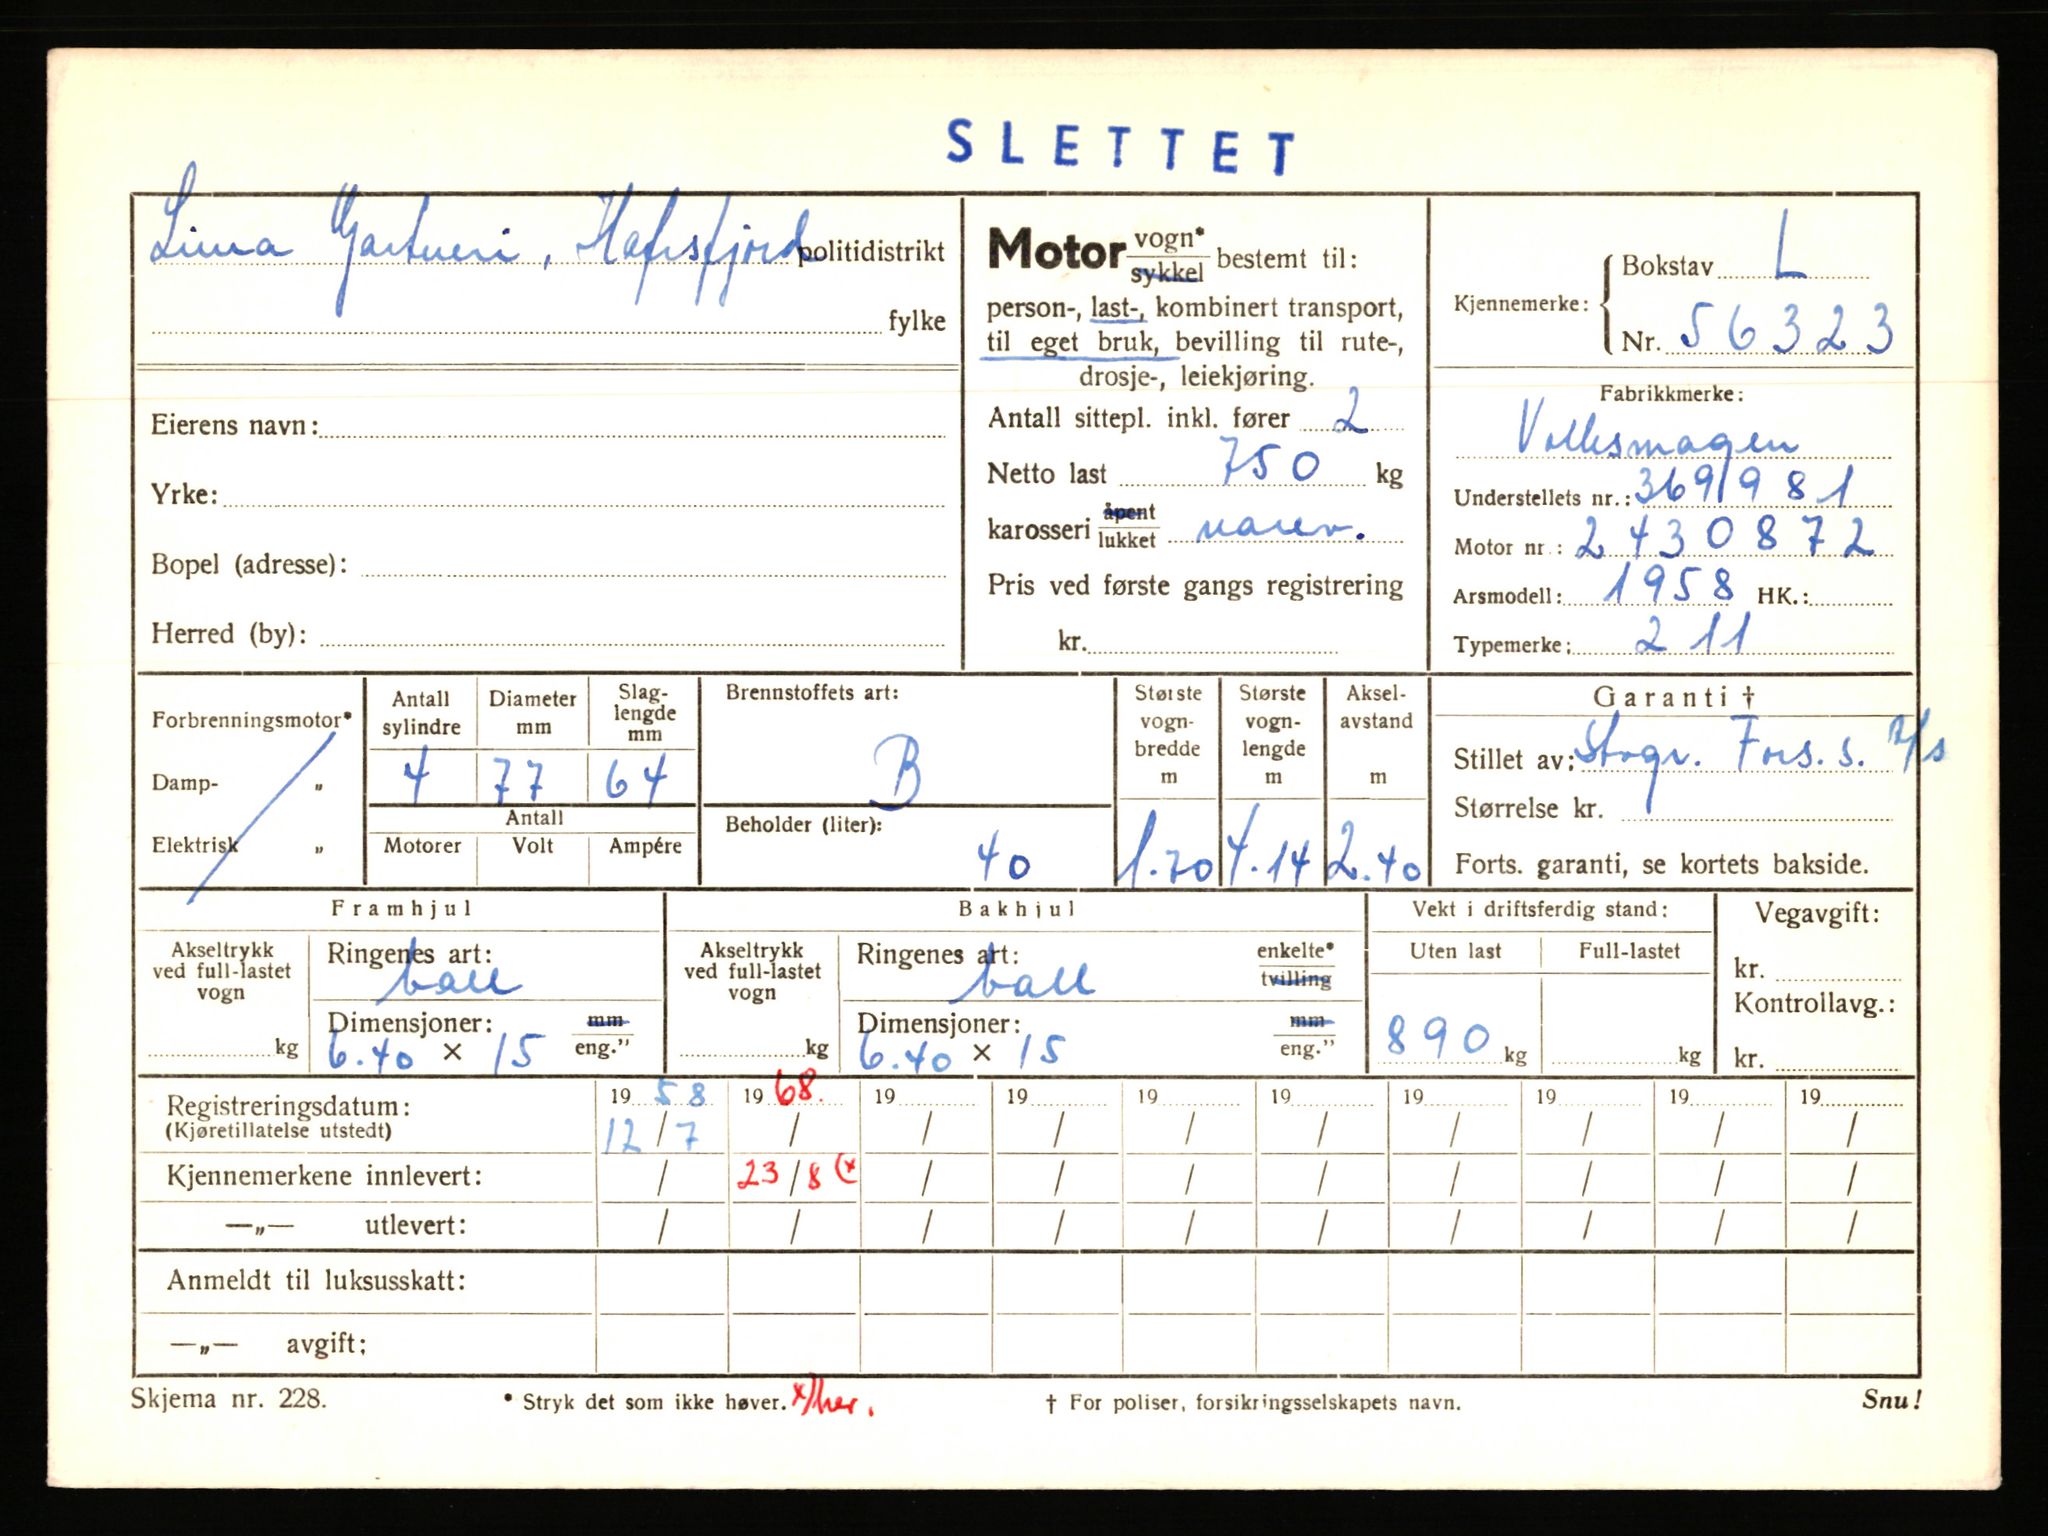 SLETTET
Lima Gartneri, Hafrsfjord politidistrikt
fylke
Eierens navn:
Yrke:
Bopel (adresse):
Herred (by):
Motor vogn* sykkel bestemt til:
person-, last-, kombinert transport,
til eget bruk, bevilling til rute-,
drosje-, leiekjøring.
Antall sittepl. inkl. fører 2
Netto last 750 kg
karosseri åpent lukket varev.
Pris ved første gangs registrering
kr.
Kjennemerke: Bokstav L
Nr. 56323
Fabrikkmerke:
Volkswagen
Understellets nr.: 369981
Motor nr.: 2430872
Arsmodell: 1958 HK.:
Typemerke: 211
Forbrenningsmotor*
Damp- "
Elektrisk "
Antall sylindre 4
Diameter mm 77
Slag-lengde mm 64
Antall
Motorer Volt Ampére
Brennstoffets art:
B
Beholder (liter):
40
Største vogn-bredde m 1.70
Største vogn-lengde m 4.14
Aksel-avstand m 2.40
Garanti †
Stillet av: Stvgr. Fors.s. A/s
Størrelse kr.
Forts. garanti, se kortets bakside.
Framhjul
Akseltrykk ved full-lastet vogn
kg
Ringenes art:
ball
Dimensjoner: mm eng."
6.40 × 15
Bakhjul
Akseltrykk ved full-lastet vogn
kg
Ringenes art: enkelte* tvilling
ball
Dimensjoner: mm eng."
6.40 × 15
Vekt i driftsferdig stand:
Uten last Full-lastet
890 kg kg
Vegavgift:
kr.
Kontrollavg.:
kr.
19 58 19 68. 19 19 19 19 19 19 19 19
Registreringsdatum: 12/7 / / / / / / / / /
(Kjøretillatelse utstedt)
Kjennemerkene innlevert: / 23/8 (x / / / / / / / /
—„— utlevert: / / / / / / / / / /
Anmeldt til luksusskatt:
—„— avgift:
Skjema nr. 228. * Stryk det som ikke høver. x/her. † For poliser, forsikringsselskapets navn. Snu!